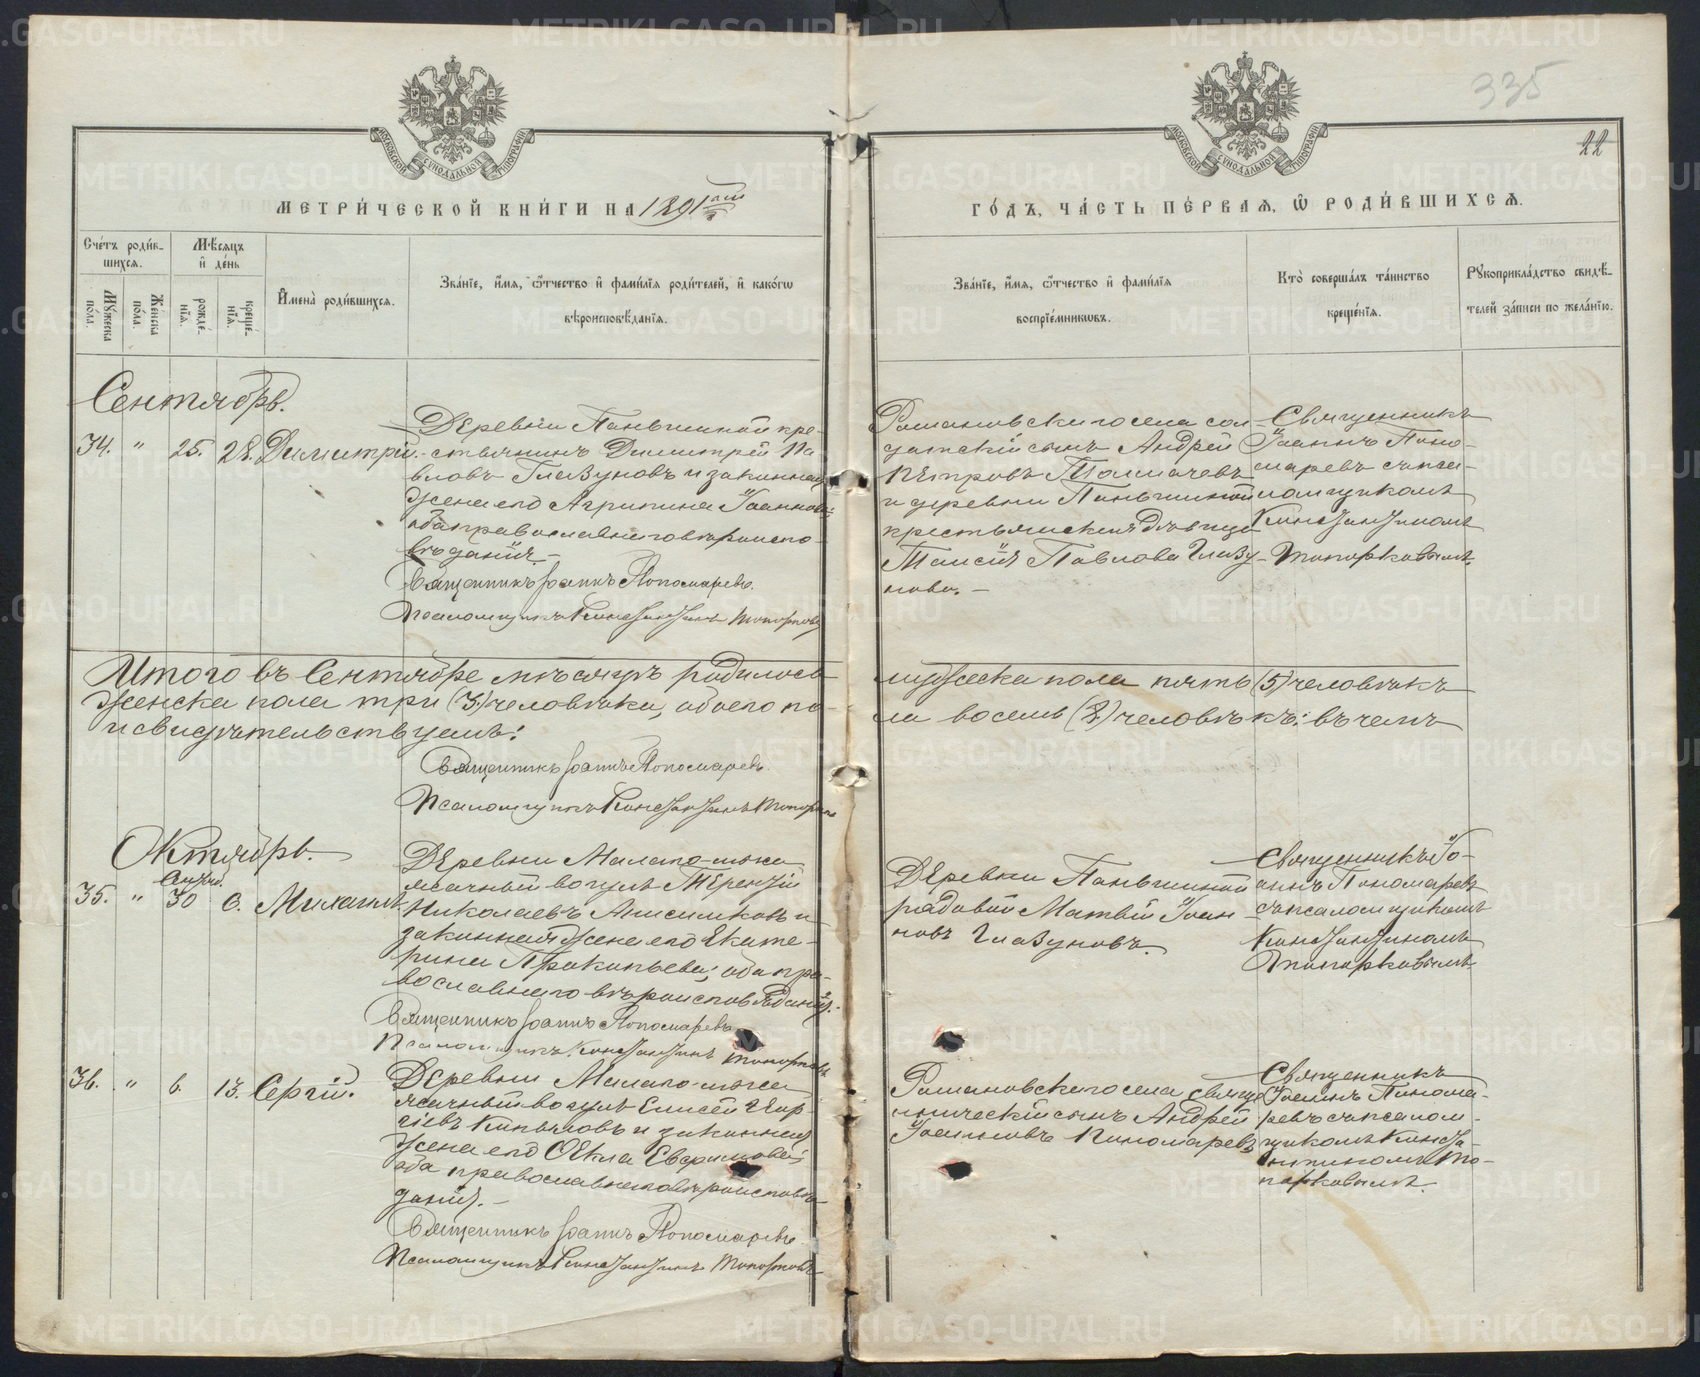 335
22
МОСКОВСКОЙ СѴНОДАЛЬНОЙ ТИПОГРАФІИ
МОСКОВСКОЙ СѴНОДАЛЬНОЙ ТИПОГРАФІИ
МЕТРИ́ЧЕСКОЙ КНИ́ГИ НА 1891
ГО́ДЪ, ЧА́СТЬ ПЕ́РВАЯ, Ѡ РОДИ́ВШИХСЯ.
Сче́тъ роди́в-
шихся.
Му́жеска по́ла.
Же́нска по́ла.
Мѣ́сяцъ
и де́нь
рожде́-нїя.
креще́-нїя.
И҆мена̀ роди́вшихся.
Зва́нїе, и҆́мя, ѻ҆́тчество и҆ фами́лїя роди́телей, и҆ како́гѡ
вѣроисповѣ́данїя.
Зва́нїе, и҆́мя, ѻ҆́тчество и҆ фами́лїя
воспрїе́мникѡвъ.
Кто̀ соверша́лъ та́инство
креще́нїя.
Рꙋкоприкла́дство свидѣ́-
телей за́писи по жела́нїю.
Сентябрь.
34. " 25. 28. Димитрій.
Деревни Паньшиной кре-
стьянинъ Димитрій Па
вловъ Глазуновъ и законная
жена его Агрипина Іоаннова;
оба православнаго вѣроиспо-
вѣданія.-
Священникъ Іоаннъ Пономаревъ.
Псаломщикъ Константинъ Топорковъ
Романовскаго села сол-
датскій сынъ Андрей
Петровъ Толмачевъ
и деревни Паньшиной
крестьянская дѣвица
Таисія Павлова Глазу-
нова.-
Священникъ
Іоаннъ Поно-
маревъ съ псал-
омщикомъ
Константиномъ
Топорковымъ.
Итого въ Сентябрѣ мѣсяцѣ родилось
мужеска пола пять (5) человѣкъ
женска пола три (3) человѣка, обоего по-
ла восемь (8) человѣкъ: въ чемъ
и свидѣтельствуемъ:
Священникъ Іоаннъ Пономаревъ.
Псаломщикъ Константинъ Топорковъ
Октябрь.
35. " 30 6. Михаилъ
Деревни
ясачный вогулъ Терентій
Николаевъ Анисимковъ и
законная жена его Екате-
рина Прокопьева; оба пра-
вославнаго вѣроисповѣданія.-
Священникъ Іоаннъ Пономаревъ
Псаломщикъ Константинъ Топорковъ
Деревни Паньшиной
рядовой Матвій Іоан-
новъ Глазуновъ.
Священникъ Іо-
аннъ Пономаревъ
съ псаломщикомъ
Константиномъ
Топорковымъ
36. " 6. 13. Сергій.
Деревни
ясачный вогулъ Елисей
и законная
жена его Ѳекла
оба православнаго вѣроисповѣ-
данія.-
Священникъ Іоаннъ Пономаревъ.
Псаломщикъ Константинъ Топорковъ
Романовскаго села свяще-
ническій сынъ Андрей
Іоанновъ Пономаревъ
Священникъ
Іоаннъ Понома-
ревъ съ псалом-
щикомъ Конста-
нтиномъ То-
порковымъ.
METRIKI.GASO-URAL.RU